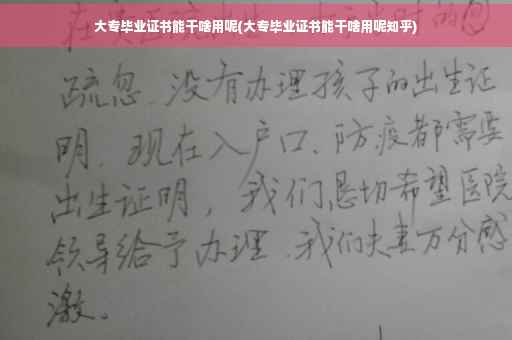 大专毕业证书能干啥用呢(大专毕业证书能干啥用呢知乎)
疏忽、没有办理孩子的出生证
明、现在入户口、防疫都需要
出生证明，我们恳切希望医院
领导给予办理、我们夫妻万分感
激。